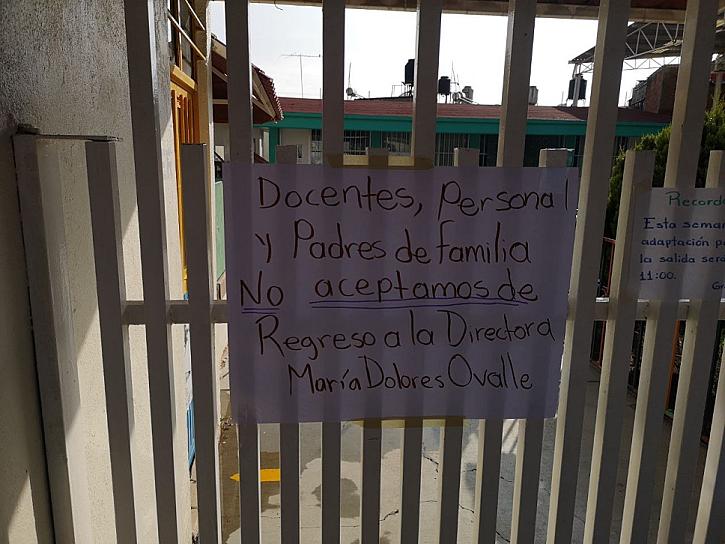 Docentes, Personal
y Padres de familia
No aceptamos de
Regreso a la Directora
María Dolores Ovalle
Esta
adaptación
la salida
11:00.